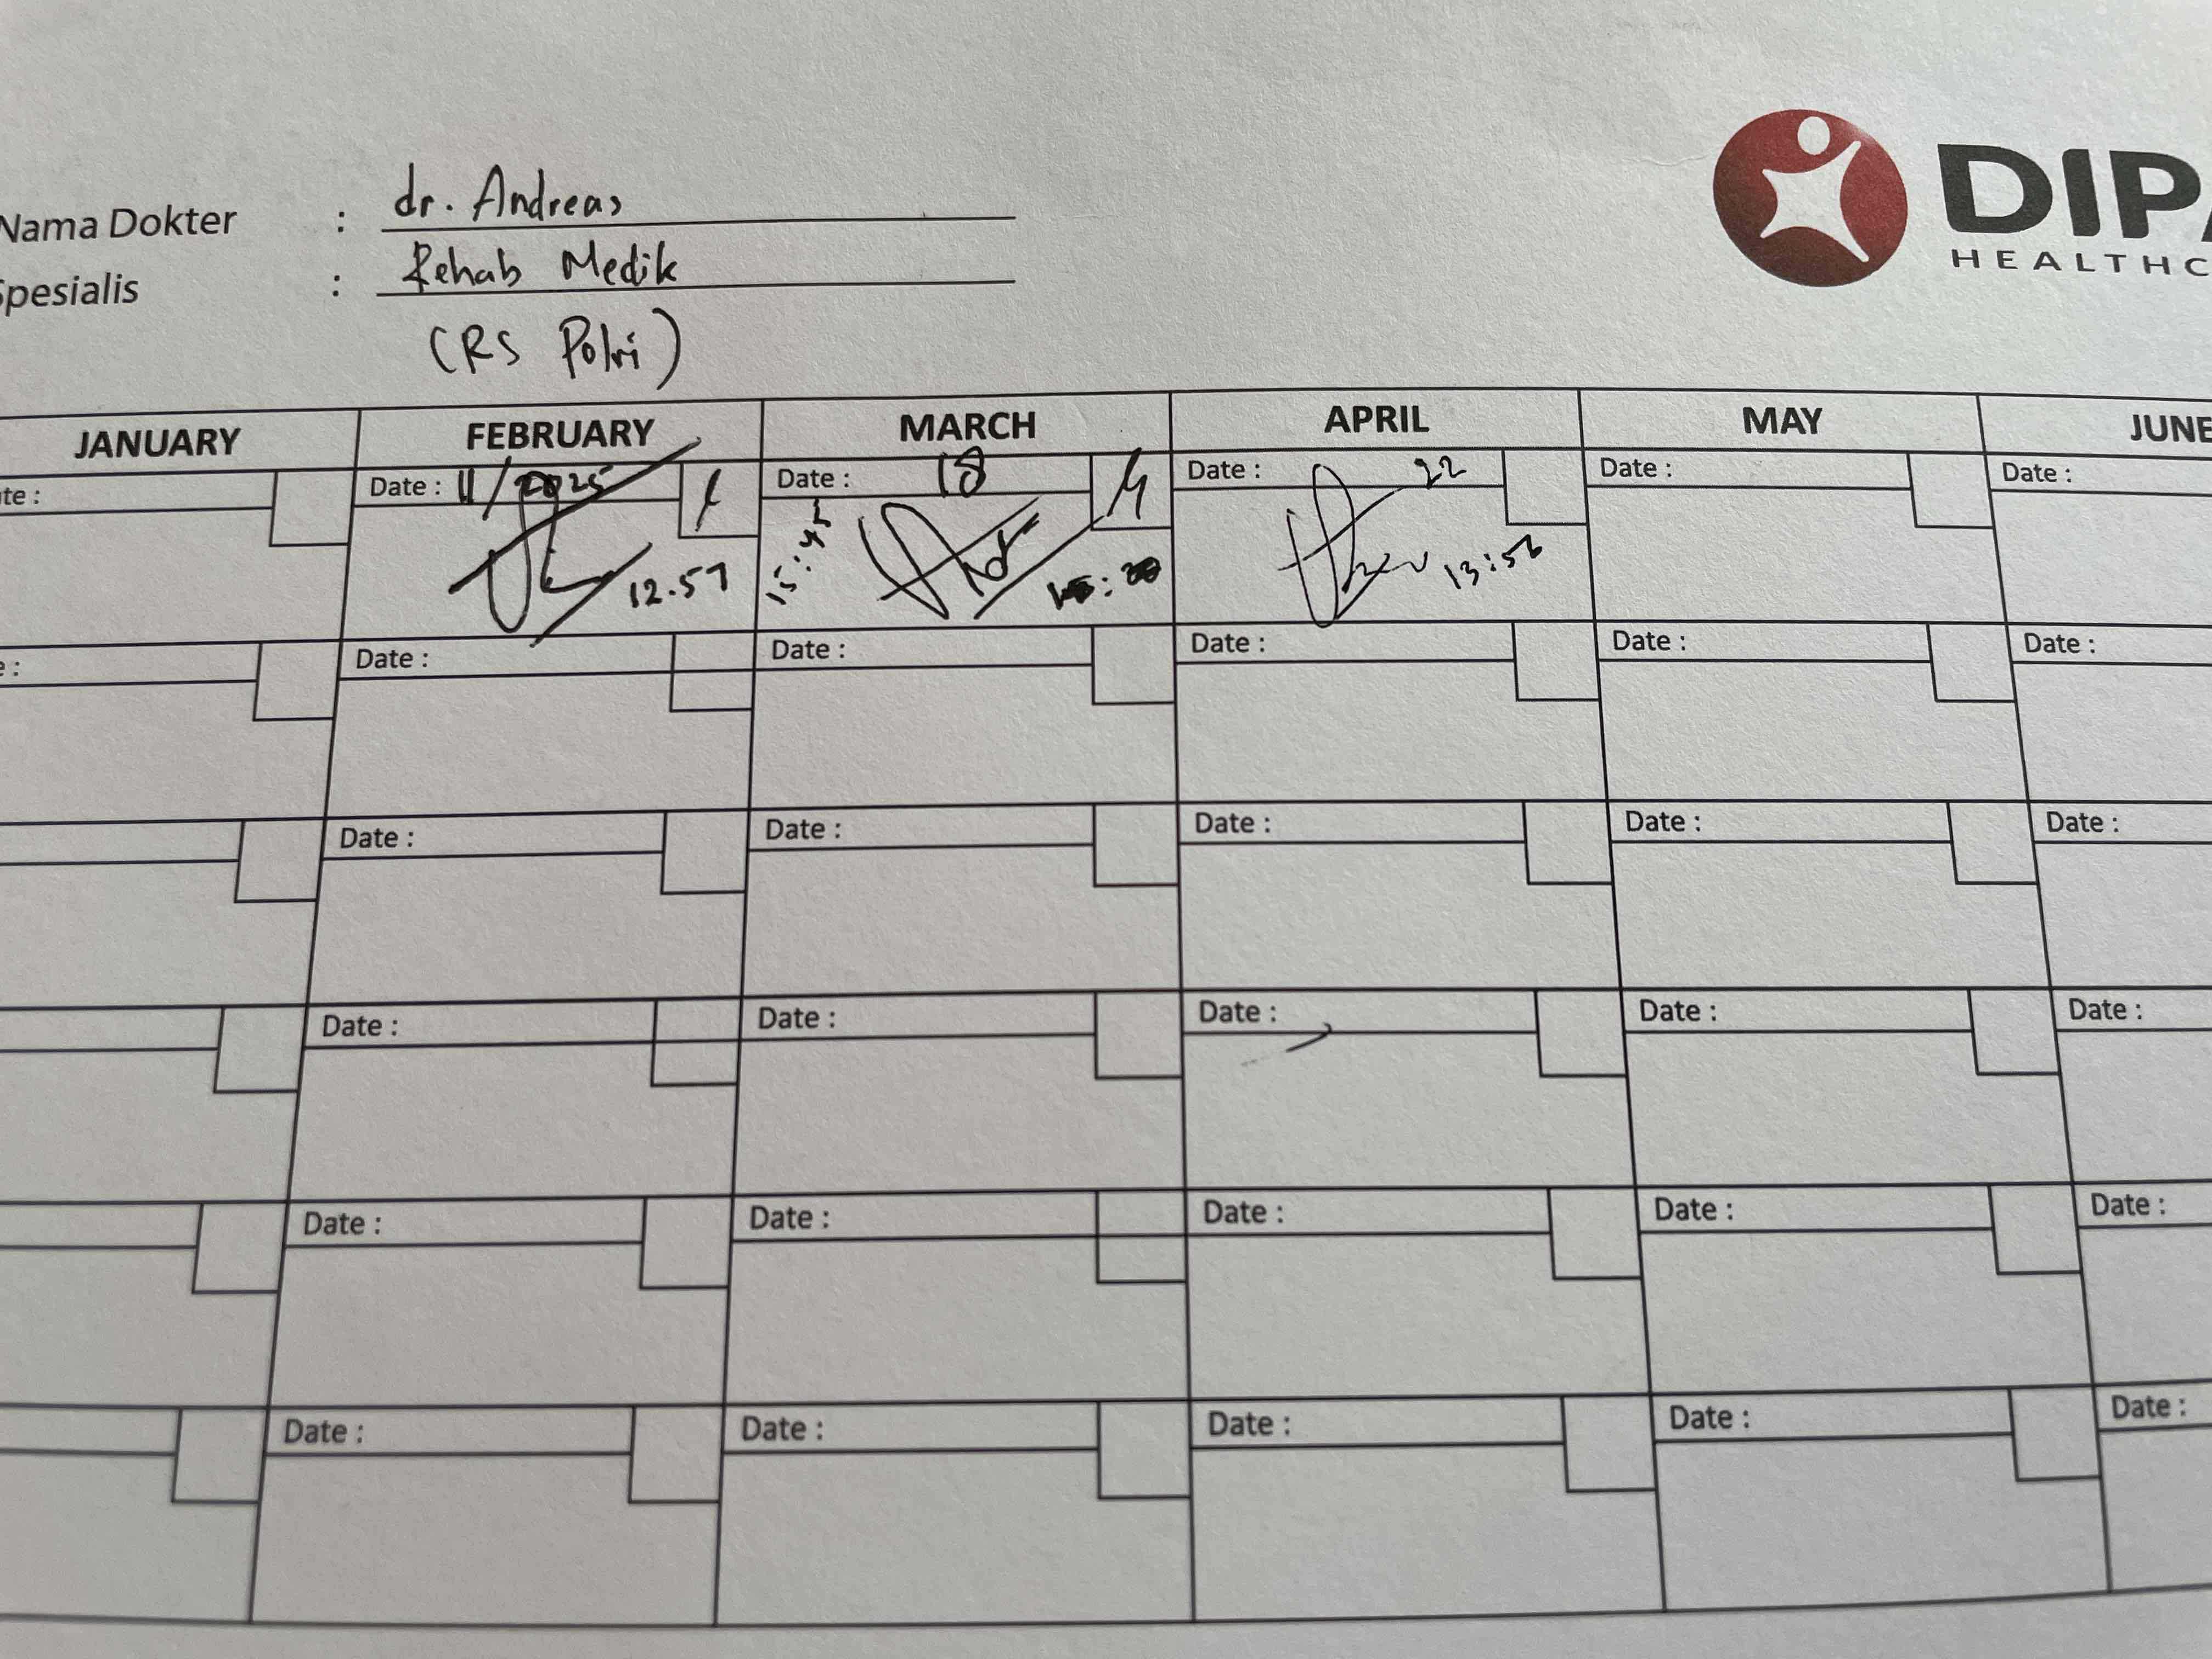 Nama Dokter : dr. Andreas
Spesialis : Rehab Medik
(RS Polri)
DIPA
HEALTHC
JANUARY FEBRUARY MARCH APRIL MAY JUNE
Date : Date : 11/2025 Date : 18 Date : 22 Date : Date :
12.57 15:45 13:56
Date : Date : Date : Date : Date :
Date : Date : Date : Date : Date :
Date : Date : Date : Date : Date :
Date : Date : Date : Date : Date :
Date : Date : Date : Date : Date :